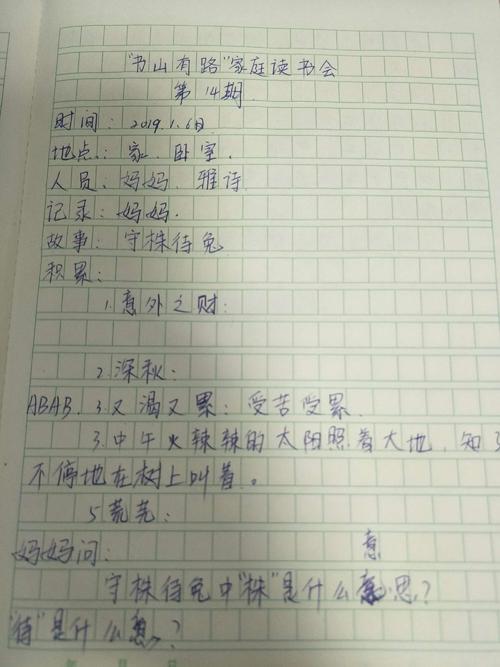 "书山有路"家庭读书会
第14期
时间：2019.1.6日
地点：家、卧室.
人员：妈妈、雅诗
记录：妈妈.
故事：守株待兔
积累：
1.意外之财：
2.深秋：
ABAB.3.又渴又累：受苦受累.
3.中午火辣辣的太阳照着大地，知了
不停地在树上叫着。
5.荒芜：
妈妈问：
意
守株待兔中"株"是什么意思？
"待"是什么意？
年 月 日